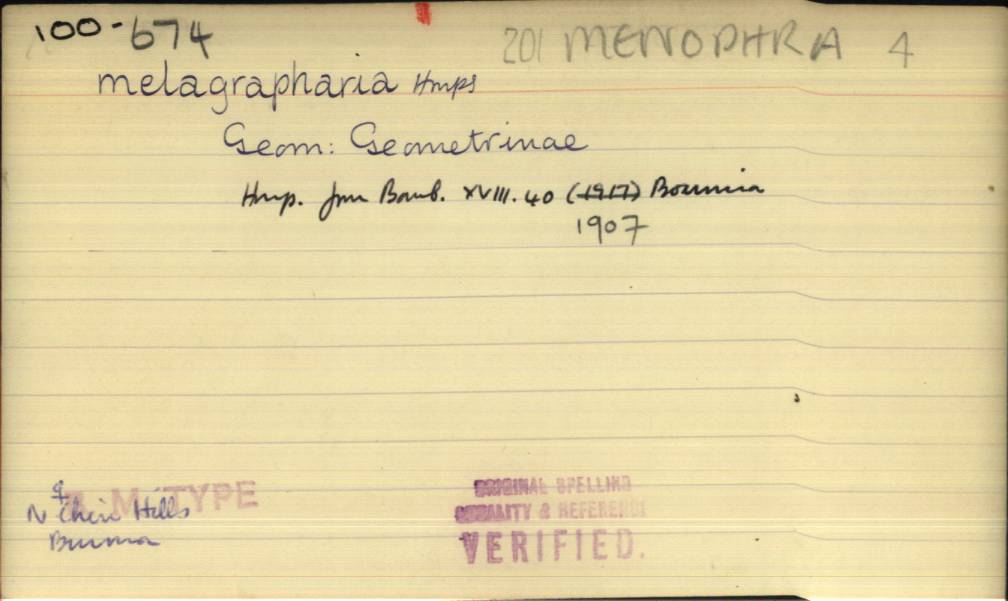 100-674
201 MENOPHRA 4
melagrapharia Hmps
Geom: Geometrinae
Hmp. Jnn Bomb. XVIII. 40 (1917) Boarmia
1907
♀ B.M. TYPE
N Chin Hills
Burma
ORIGINAL SPELLING
LOCALITY & REFERENCE
VERIFIED.